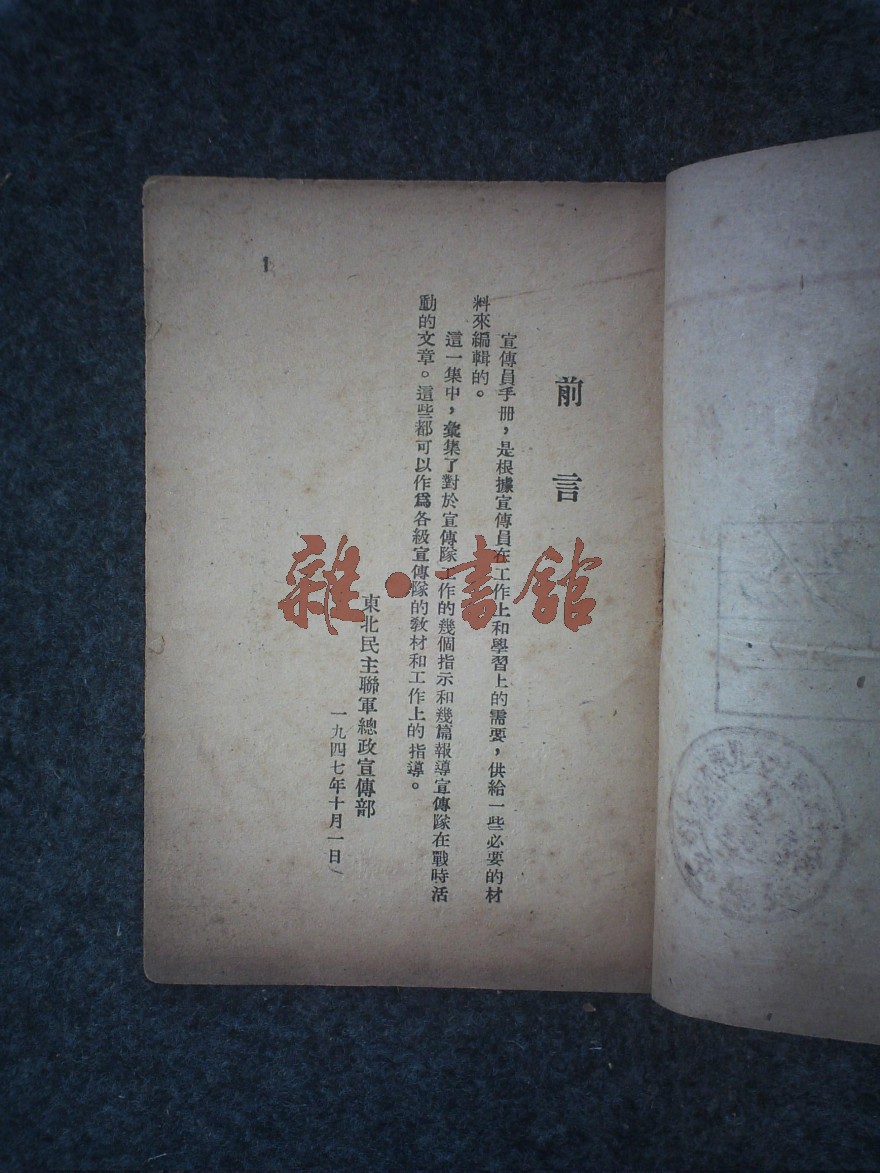 前言
宣傳員手册，是根據宣傳員在工作上和學習上的需要，供給一些必要的材
料來編輯的。
這一集中，彙集了對於宣傳隊工作的幾個指示和幾篇報導宣傳隊在戰時活
動的文章。這些都可以作爲各級宣傳隊的教材和工作上的指導。
東北民主聯軍總政宣傳部
一九四七年十月一日
1
雜·書館